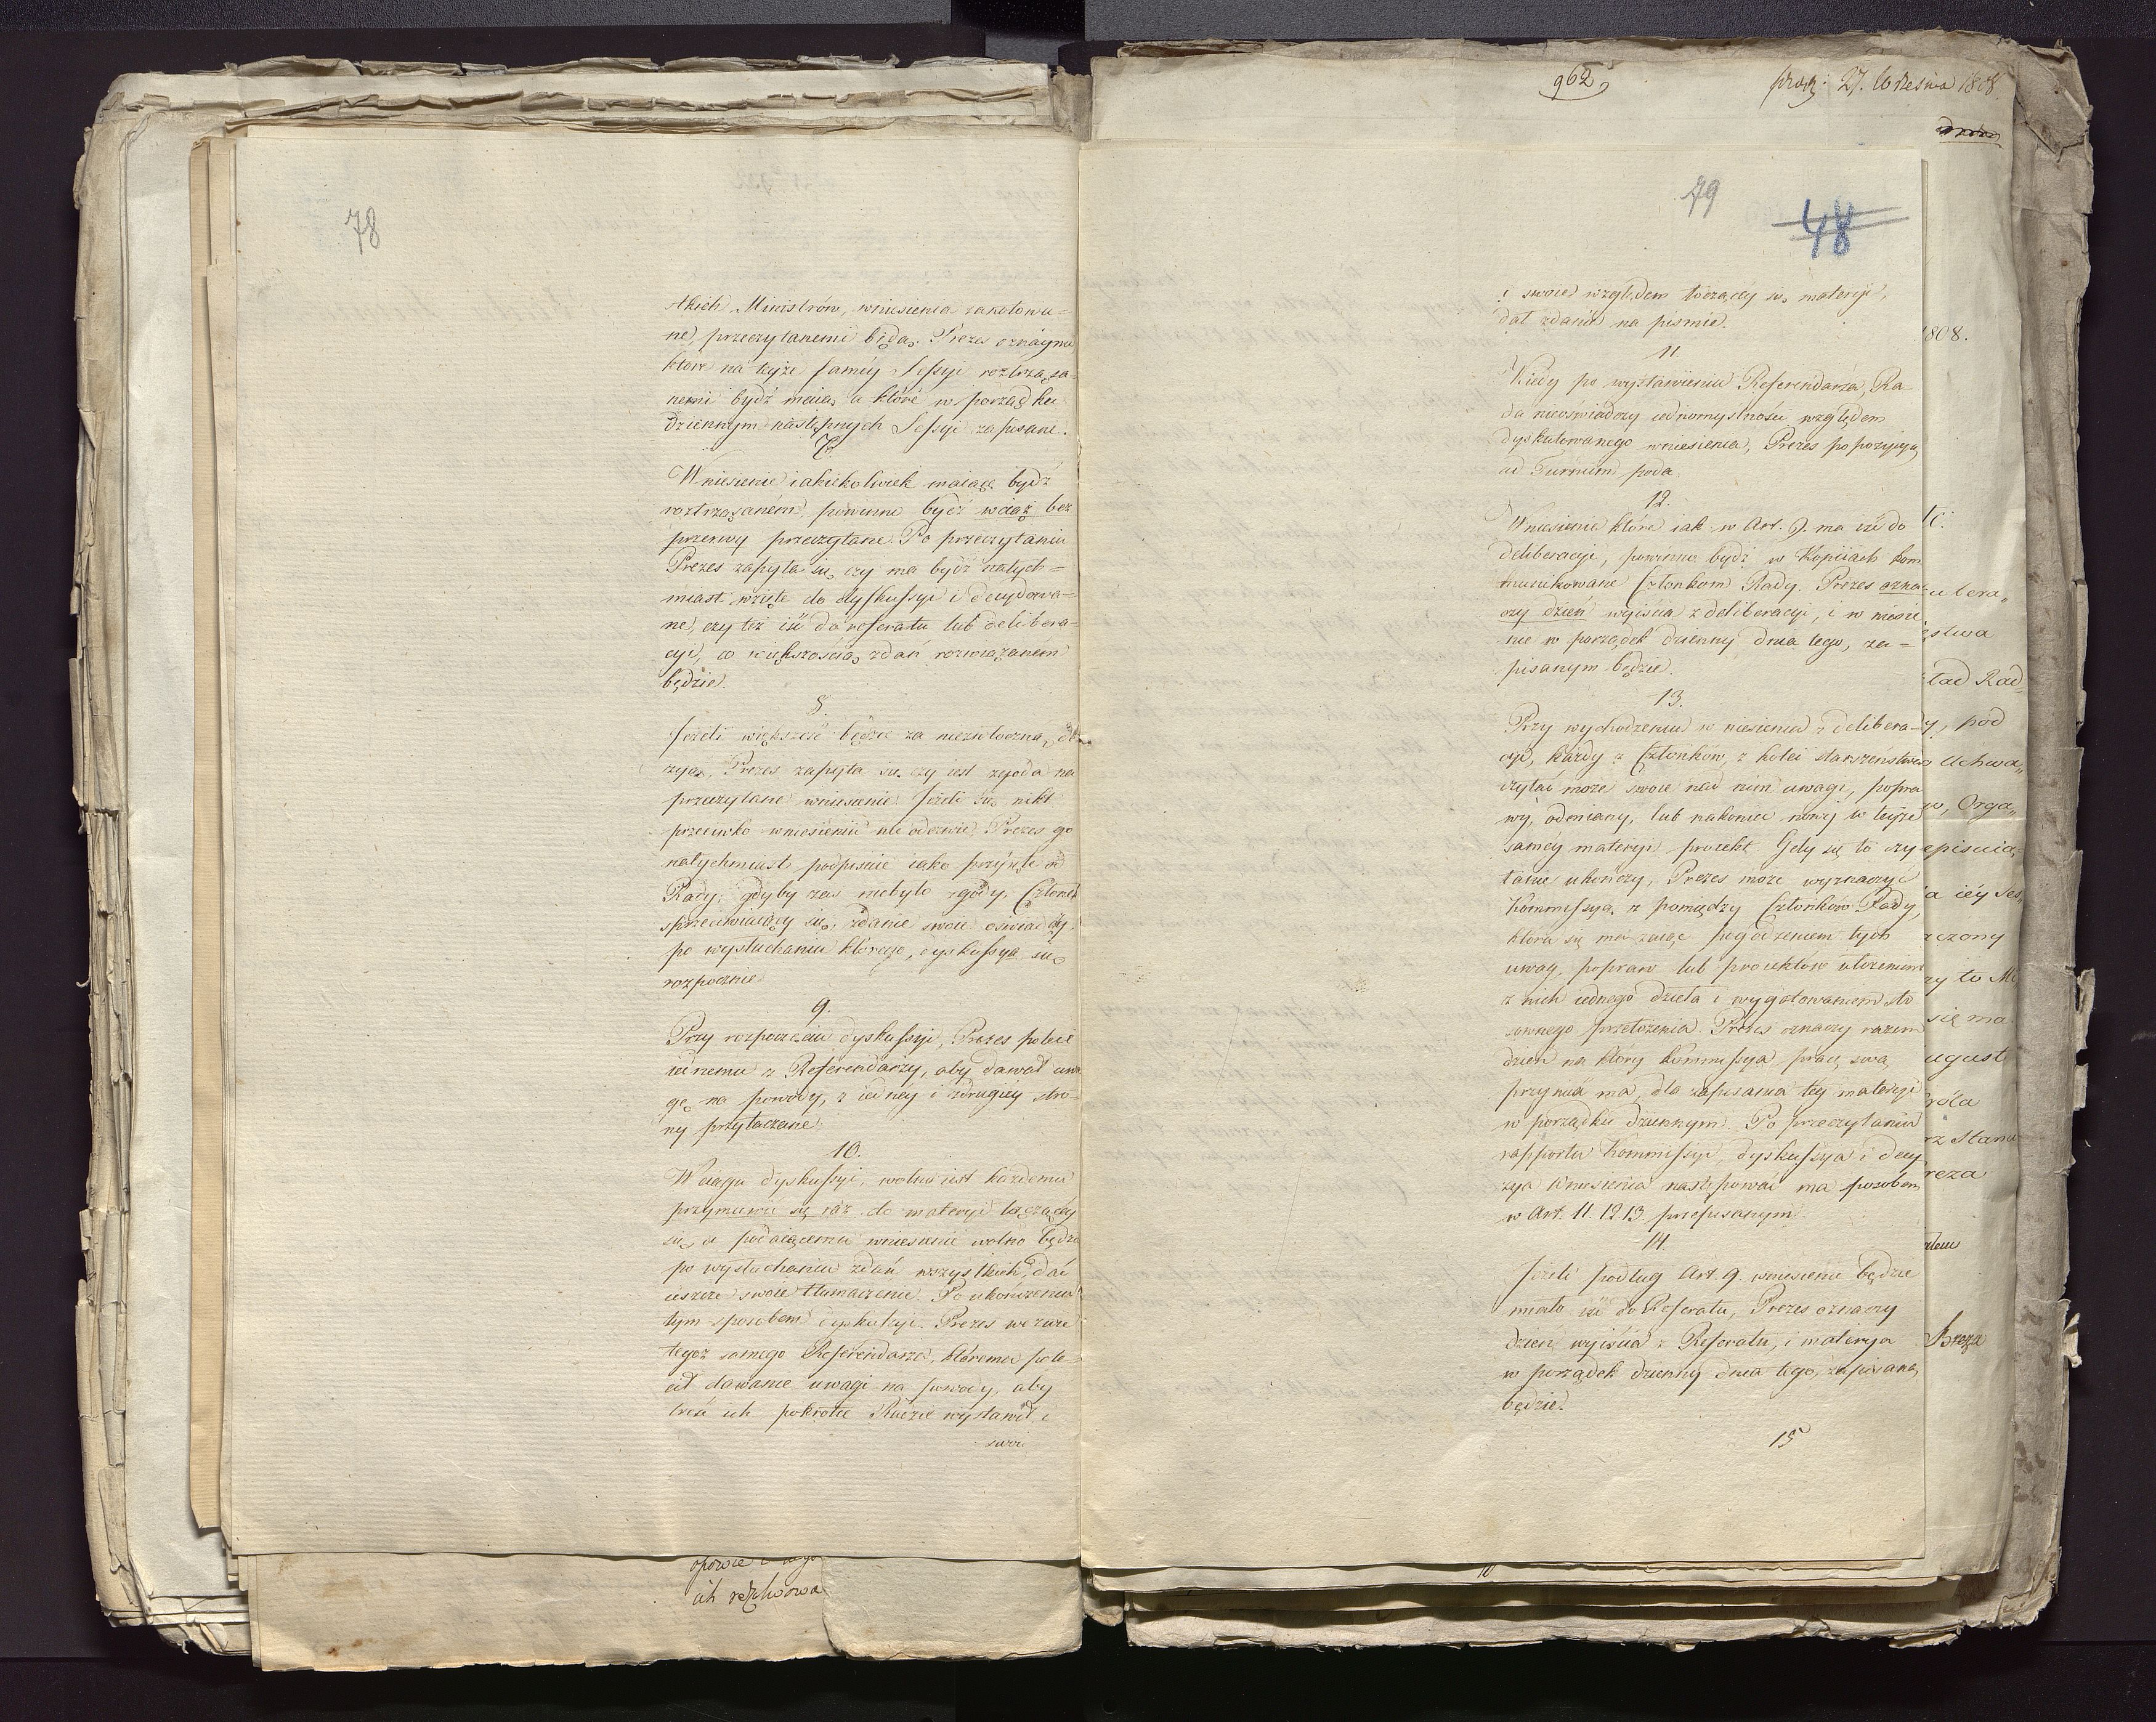 78
stkich Ministrów, wniesienia zanotowa=
ne, przeczytanemi będą. Prezes oznaymi
które na teyże saméy Sessyi roztrząsa=
nemi bydź maią, a które w porządku
dziennym następnych Sessyi zapisane.
7.
Wniesienie iakiekolwiek maiące bydź
roztrząsaném, powinno bydź wciąż bez
przerwy przeczytane. Po przeczytaniu
Prezes zapyta się, czy ma bydź natych=
miast wzięte do dyskussyi i decydowa=
ne, czy też iść do referatu lub delibera=
cyi, co większością zdań rozwiązanem
będzie.
8.
Jeżeli większość będzie za niezwłoczną de
cyzyą, Prezes zapyta się czy iest zgoda na
przeczytane wniesienie. Jeżeli się nikt
przeciwko wniesieniu nie odezwie, Prezes go
natychmiast podpisuie iako przyięte od
Rady, gdyby zaś niebyło zgody, Członek
sprzeciwiaiący się, zdanie swoie oświadczy,
po wysłuchaniu którego, dyskussya się
rozpocznie
9.
Przy rozpoczęciu dyskussyi, Prezes poleci
iednemu z Referendarzy, aby dawał uwa
gę na powody, z iednéy i zdrugiéy stro=
ny przytaczane
10.
W ciągu dyskussyi, wolno iest każdemu
przymówić się raz do materyi toczącéy
się, a podaiącemu wniesienie wolno będzie
po wysłuchaniu zdań wszystkich, dać
ieszcze swoie tłumaczenie. Po ukończeniu
tym sposobem dyskussyi. Prezes wezwie
tegoż samego Referendarza, któremu pole=
cił dawanie uwagi na powody, aby
treść ich pokrótce Radzie wystawił i
swoi
opowie
ich
962
27. Września 1808
79
48
i swoie względem toczącéy się materyi,
dał zdanie na pismie.
11.
Kiedy po wystawieniu Referendarza, Ra=
da nieoświadczy iednomyślności względem
dyskutowanego wniesienia, Prezes propozycyą
ad Turnum poda.
12.
Wniesienie które iak w Art. 9. ma iść do
deliberacyi, powinno bydź w Kopiiach kom
munikowane Członkom Rady. Prezes ozna
czy dzień wyiścia z deliberacyi, i wniesie
nie w porządek dzienny dnia tego, za=
pisanym będzie.
13.
Przy wychodzeniu wniesienia z delibera=
cyi, każdy z Członków, z kolei starszeństwa
czytać może swoie nad nim uwagi, popra
wy, odmiany, lub nakoniec nowy w teyże
saméy materyi proiekt. Gdy się to czy
tanie ukończy, Prezes może wyznaczyć
Kommissyą z pomiędzy Członków Rady,
która się ma zaiąć pogodzeniem tych
uwag, popraw lub proiektów ułożeniem
z nich iednego dzieła i wygotowaniem sto
sownego przełożenia. Prezes oznaczy razem
dzień na który Kommissya pracę swą
przynieść ma, dla zapisania tey materyi
w porządku dziennym. Po przeczytaniu
rapportu Kommissyi, dyskussya i decy
zya wniesienia następować ma sposobem
w Art. 11. 12 13. przepisanym
14.
Jeżeli podług Art. 9. wniesienie będzie
miało iść do Referatu, Prezes oznaczy
dzień wyiścia z Referatu, i materya
w porządek dzienny dnia tego, zapisaną
będzie.
15
1808.
stwa
Rad
pod
Uchwa
Orga
iéy Ses
się ma
August
Breza